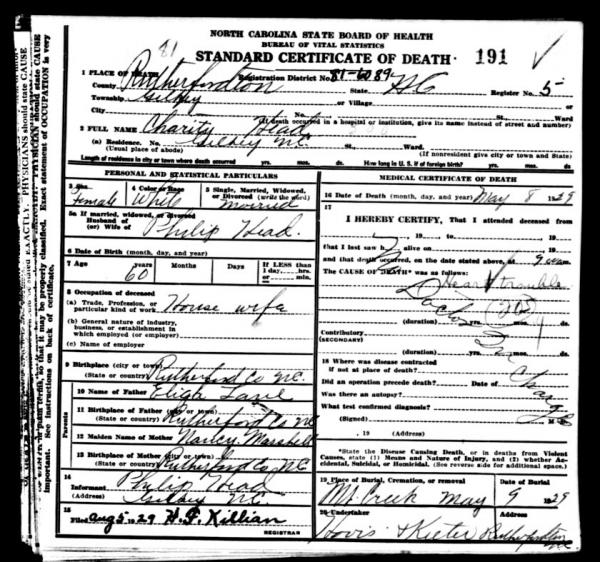 NORTH CAROLINA STATE BOARD OF HEALTH
BUREAU OF VITAL STATISTICS
STANDARD CERTIFICATE OF DEATH 191
81
1 PLACE OF DEATH
County Rutherfordton Registration District No. 81-6089 State NC Register No. 5
Township Gilkey or Village or
City No. St., Ward
(If death occurred in a hospital or institution, give its name instead of street and number)
2 FULL NAME Charity Head
(a) Residence. No. Gilkey NC St., Ward
(Usual place of abode) (If nonresident give city or town and State)
Length of residence in city or town where death occurred yrs. mos. ds. How long in U. S. if of foreign birth? yrs. mos. ds.
PERSONAL AND STATISTICAL PARTICULARS
3 Sex Female 4 Color or Race White 5 Single, Married, Widowed, or Divorced (write the word) Married
5a If married, widowed, or divorced
Husband of
(or) Wife of Philip Head.
6 Date of Birth (month, day, and year)
7 Age years 60 Months Days If LESS than 1 day, hrs. or min.
8 Occupation of deceased
(a) Trade, Profession, or particular kind of work House wife
(b) General nature of industry, business, or establishment in which employed (or employer)
(c) Name of employer
9 Birthplace (city or town) Rutherford Co NC.
(State or country)
Parents
10 Name of Father Eliga
11 Birthplace of Father (city or town) Rutherford Co NC
(State or country)
12 Maiden Name of Mother Nancy Marshall
13 Birthplace of Mother (city or town) Rutherford Co, NC
(State or country)
14 Informant Philip Head
(Address) Gilkey NC
15 Filed Aug 5 1929 H. F. Killian
REGISTRAR
MEDICAL CERTIFICATE OF DEATH
16 Date of Death (month, day, and year) May 8 1929
17 I HEREBY CERTIFY, That I attended deceased from
, 19 , to , 19
that I last saw h alive on , 19
and that death occurred, on the date stated above, at 9 am
The CAUSE OF DEATH* was as follows:
Heart trouble
(duration) yrs. mos. ds.
Contributory
(SECONDARY)
(duration) yrs. mos. ds.
18 Where was disease contracted
if not at place of death?
Did an operation precede death? Date of
Was there an autopsy?
What test confirmed diagnosis?
(Signed) M. D.
, 19 (Address)
*State the Disease Causing Death, or in deaths from Violent Causes, state (1) Means and Nature of Injury, and (2) whether Accidental, Suicidal, or Homicidal. (See reverse side for additional space.)
19 Place of Burial, Cremation, or removal Date of Burial
Mt. Creek May 9 1929
20 Undertaker